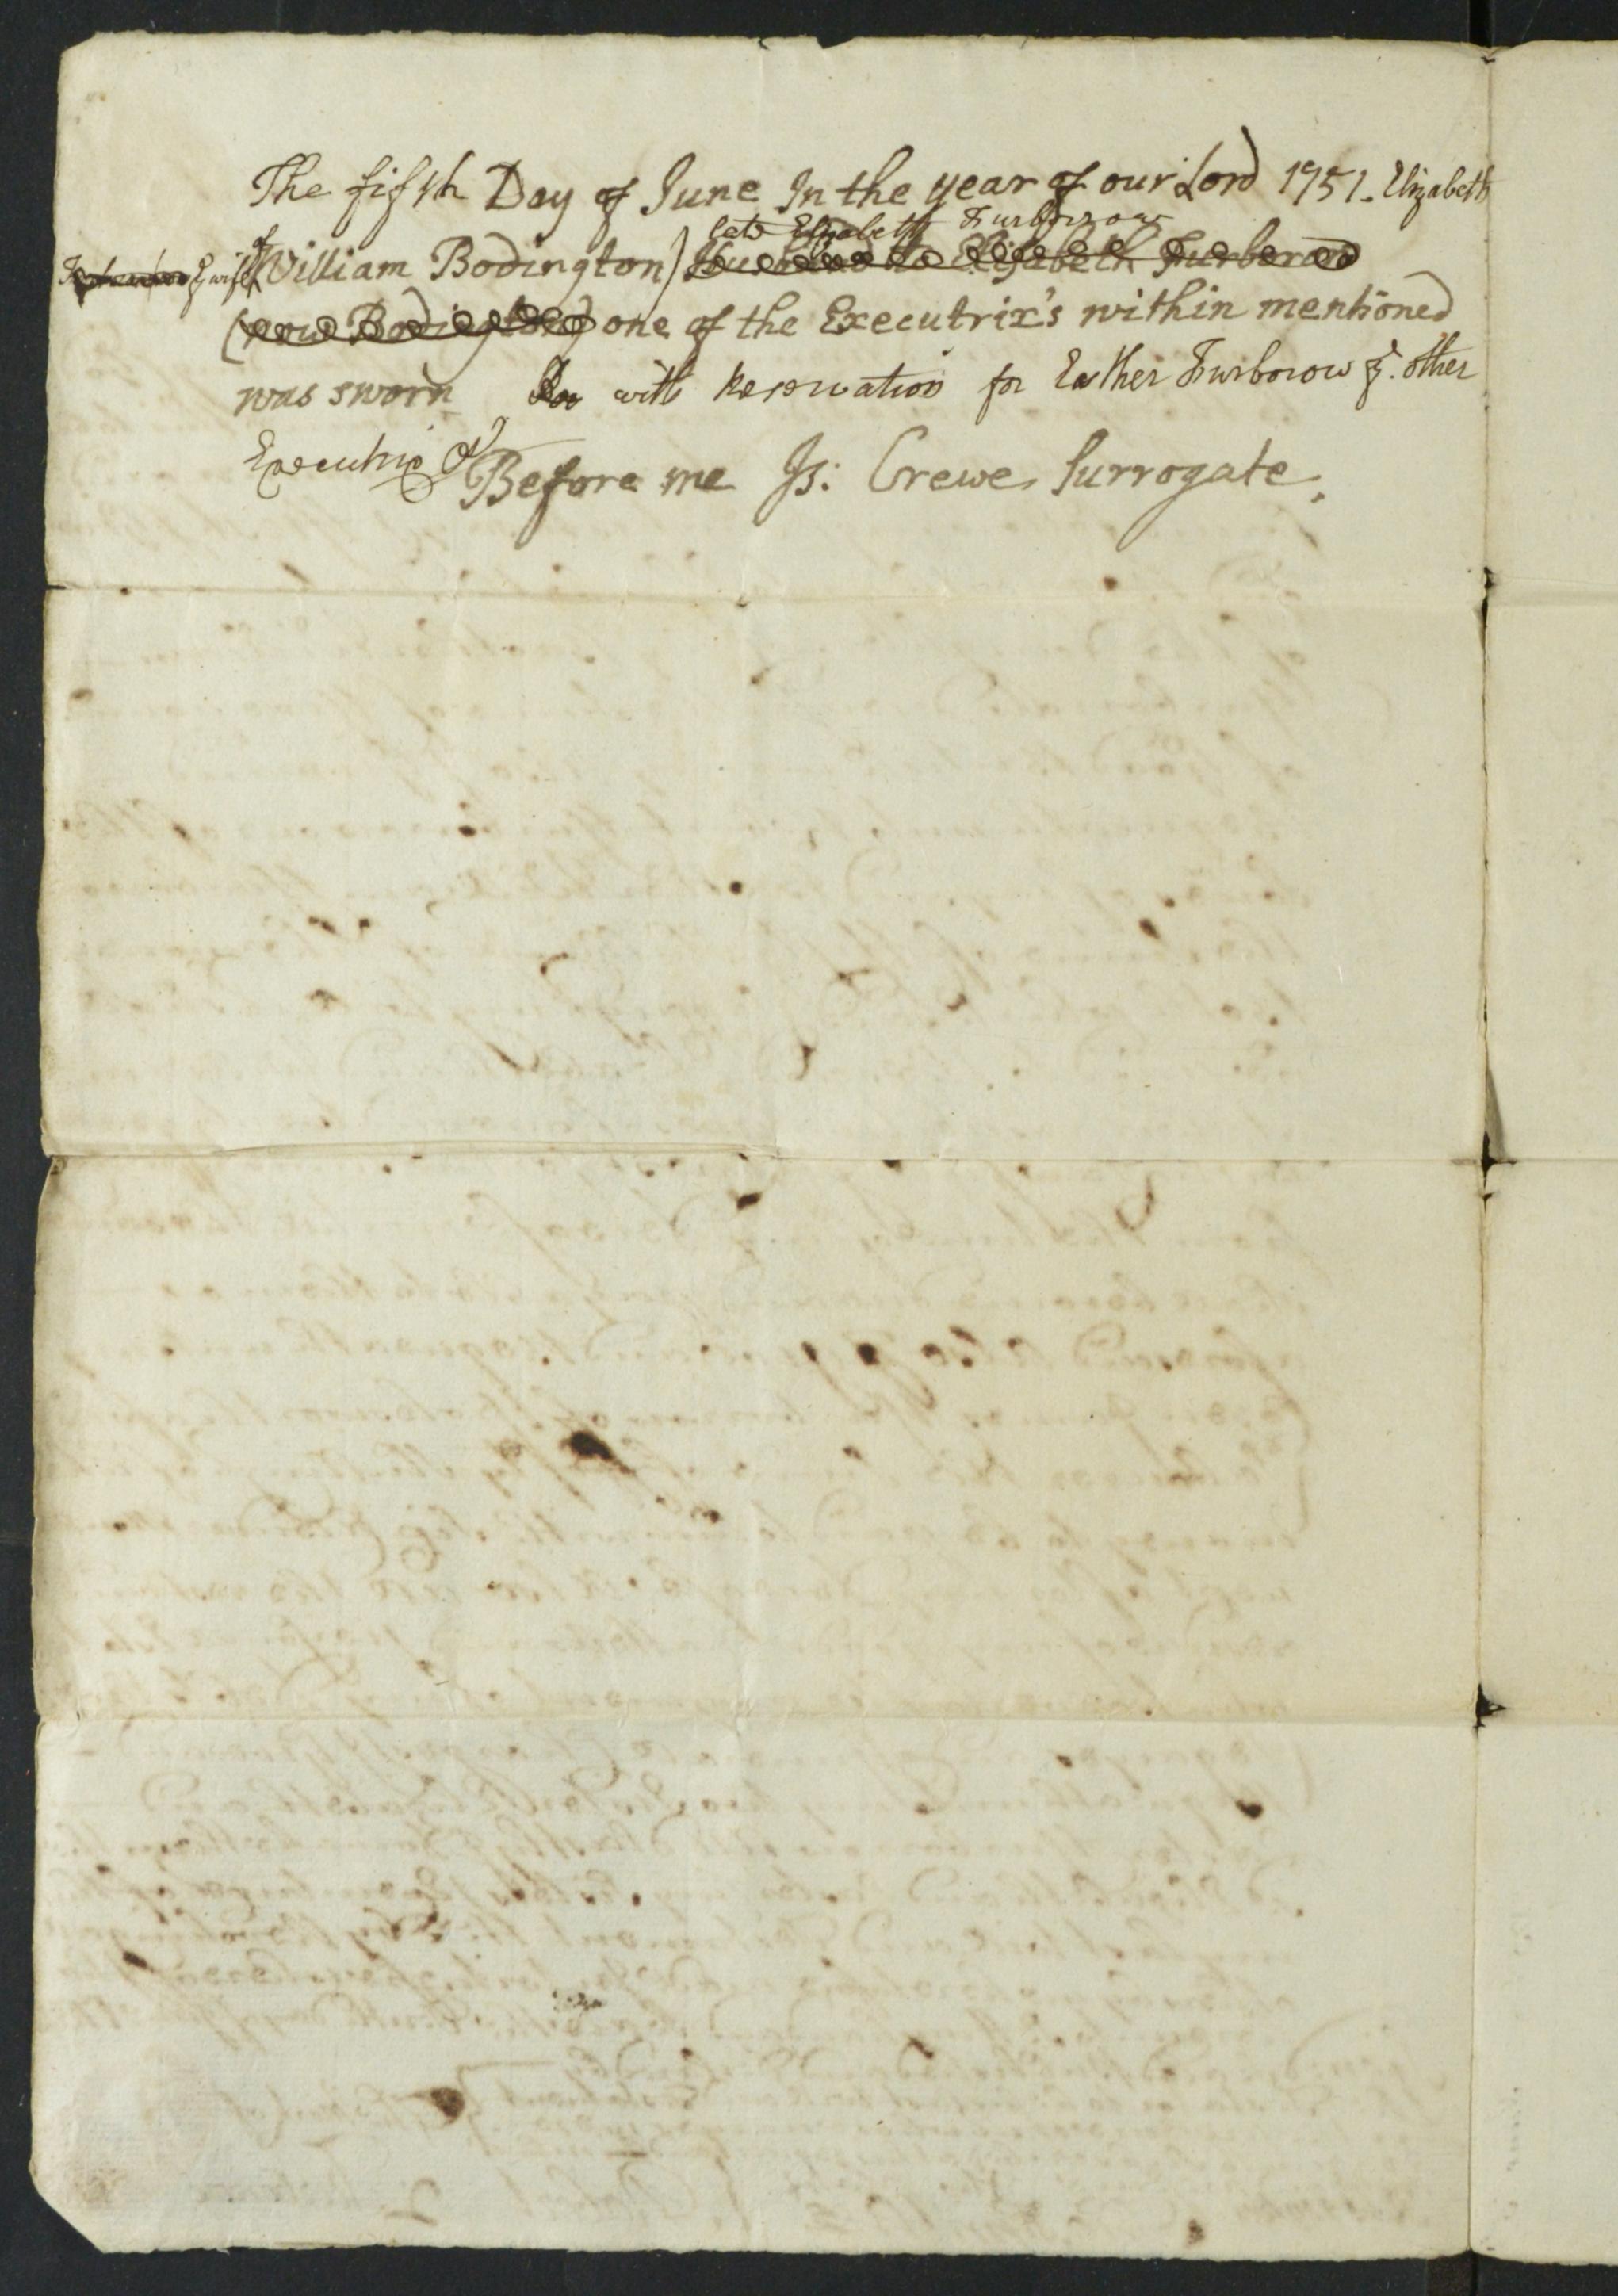 The fifth Day of June In the year of our Lord 1751. Elizabeth
late Elizabeth Furborrow
ye wife of William Bodington) Husband to Elizabeth Furborow
(now Bodington) one of the Executrix's within mentioned
was sworn with Reservation for Esther Furborow ye. other
Executrix
Before me Is: Crewe Surrogate.